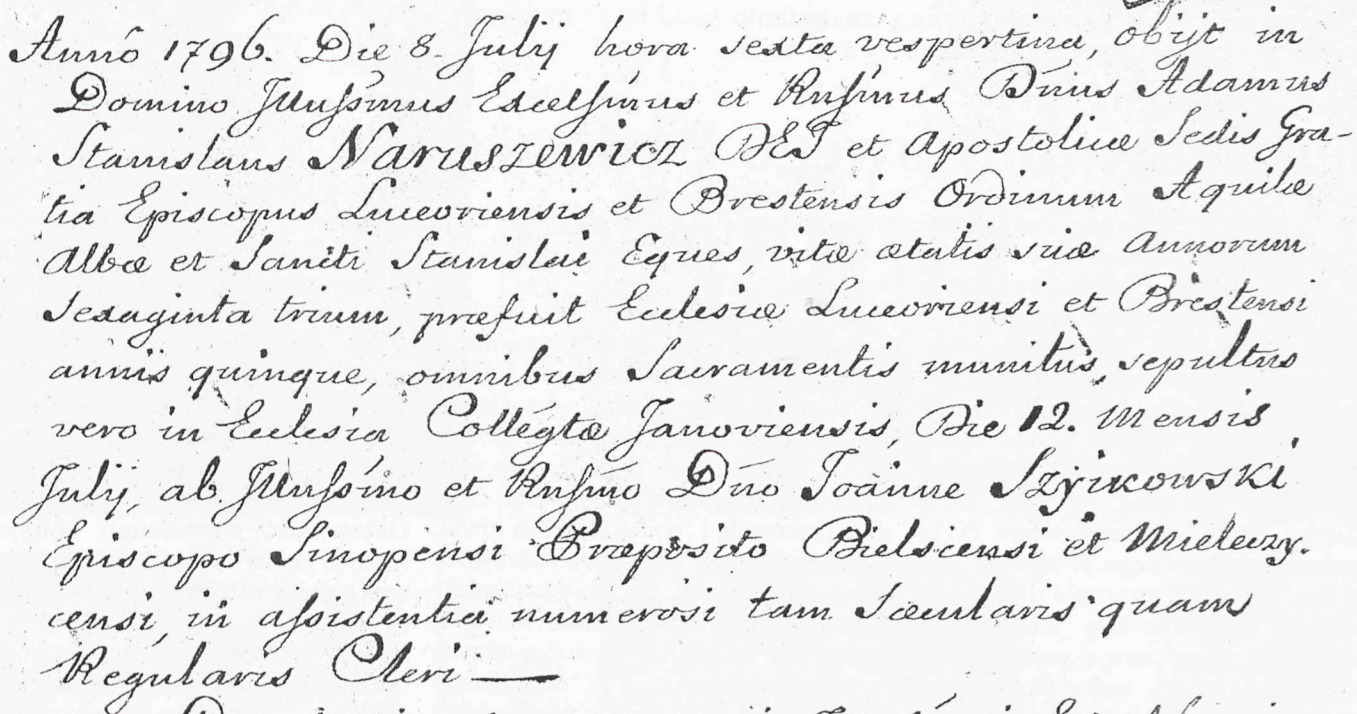 Annô 1796. Die 8. Julij hora sexta vespertina, obijt in
Domino Illussimus Excelsmus et Rnssmus Dnus Adamus
Stanislaus Naruszewicz DEI et Apostolicæ Sedis Gra-
tia Episcopus Luceoriensis et Brestensis Ordinum Aquilæ
Albæ et Sancti Stanislai Eques, vitæ ætatis suæ Annorum
sexaginta trium, præfuit Ecclesiæ Luceoriensi et Brestensi
annis quinque, omnibus Sacramentis munitus, sepultus
vero in Ecclesia Collegtæ Janoviensis, Die 12. Mensis
Julij, ab Illussmo et Rnssmo Dno Joanne Szyikowski
Episcopo Sinopensi Præposito Bielscensi et Mielczy.
censi, in assistentia numerosi tam sæcularis quam
Regularis Cleri —